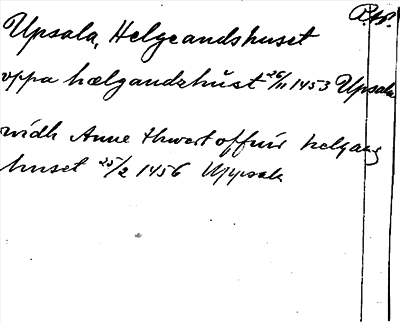 P.W.
Upsala, Helgeandshuset
oppa hælgandzhust 26/11 1453 Upsala
widh Anne thwert offuir helgang
huset 25/2 1456 Upsala